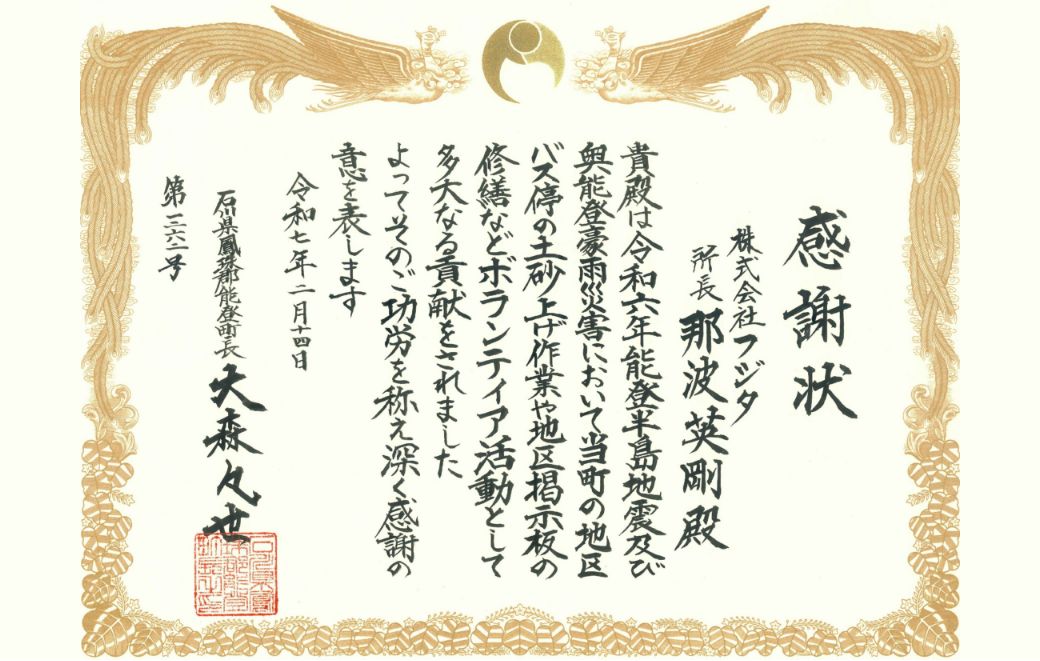 感謝状
株式会社フジタ
所長 那波英剛殿
貴殿は令和六年能登半島地震及び
奥能登豪雨災害において当町の地区
バス停の土砂上げ作業や地区掲示板の
修繕などボランティア活動として
多大なる貢献をされました
よってそのご功労を称え深く感謝の
意を表します
令和七年二月十四日
石川県鳳珠郡能登町長 大森凡世
第二六二号